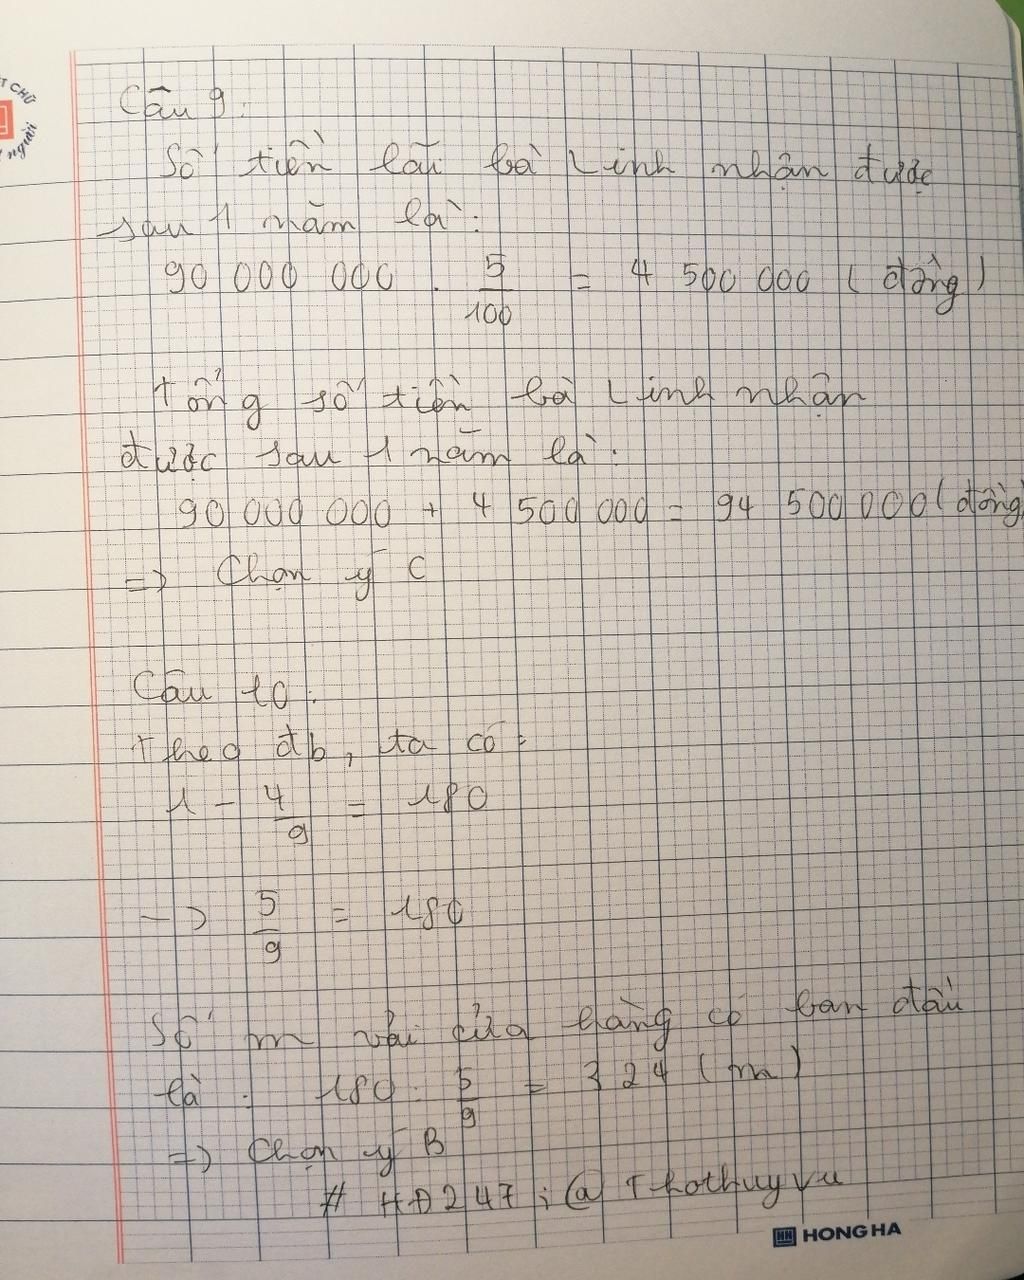 T CHỮ
người
Câu 9:
Số tiền lãi bà Linh nhận được
sau 1 năm là:
90 000 000 . 5/100 = 4 500 000 (đồng)
Tổng số tiền bà Linh nhận
được sau 1 năm là:
90 000 000 + 4 500 000 = 94 500 000 (đồng)
=> Chọn ý C
Câu 10:
Theo đb, ta có:
1 - 4/9 = 180
-> 5/9 = 180
Số m vải cửa hàng có ban đầu
là: 180 : 5/9 = 324 (m)
=> Chọn ý B
# HĐ247 ; @ Thothuyvu
HH HONG HA